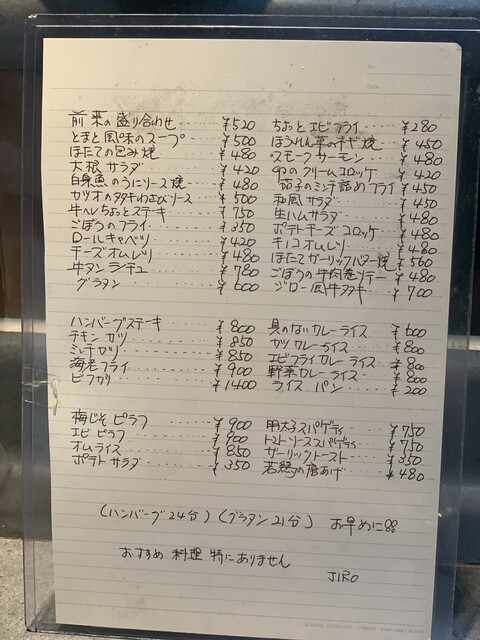 前菜の盛り合わせ ¥520
とまと風味のスープ ¥500
ほたての包み焼 ¥480
大根サラダ ¥420
白身魚のうにソース焼 ¥480
カツオのタタキわさびソース ¥500
牛ヘレちょっとステーキ ¥750
ごぼうのフライ ¥350
ロールキャベツ ¥420
チーズオムレツ ¥480
牛タンシチュー ¥780
グラタン ¥600
ちょっとエビフライ ¥280
ほうれん草のチーズ焼 ¥450
スモークサーモン ¥480
クリームコロッケ ¥420
茄子のミンチ詰めフライ ¥450
和風サラダ ¥450
生ハムサラダ ¥480
ポテトチーズコロッケ ¥480
キノコオムレツ ¥480
ほたてガーリックバター焼 ¥560
ごぼうの牛肉巻ソテー ¥480
ジロー風牛タタキ ¥700
ハンバーグステーキ ¥800
チキンカツ ¥850
ミンチカツ ¥850
海老フライ ¥900
ビフカツ ¥1400
具のないカレーライス ¥600
カツカレーライス ¥800
エビフライカレーライス ¥800
野菜カレーライス ¥800
ライス パン ¥200
梅じそピラフ ¥900
エビピラフ ¥900
オムライス ¥850
ポテトサラダ ¥350
明太子スパゲティ ¥750
トマトソーススパゲティ ¥750
ガーリックトースト ¥350
若鶏の唐あげ ¥480
(ハンバーグ24分) (グラタン21分) お早めに!!
おすすめ料理特にありません
JIRO